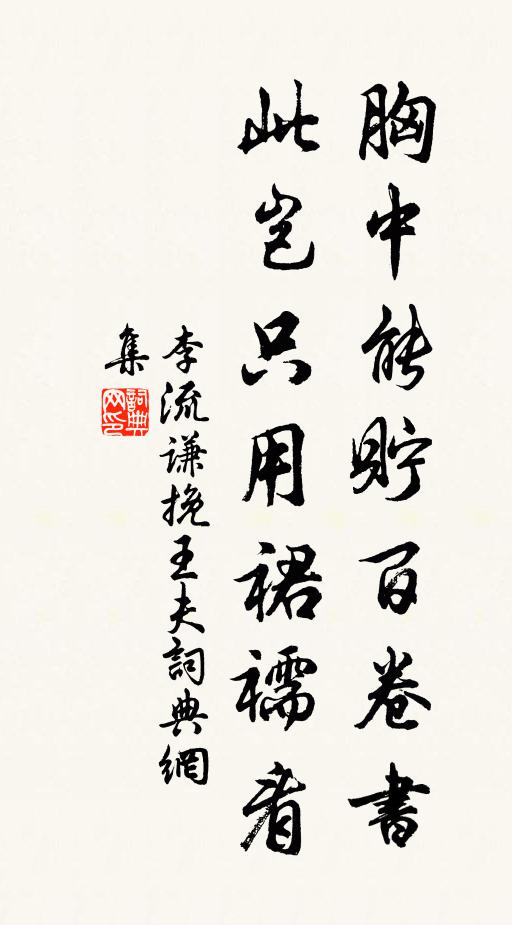 胸中能貯百卷書
此豈只用裙襦看
李流謙挽王夫詞典網
集
詞典
网印